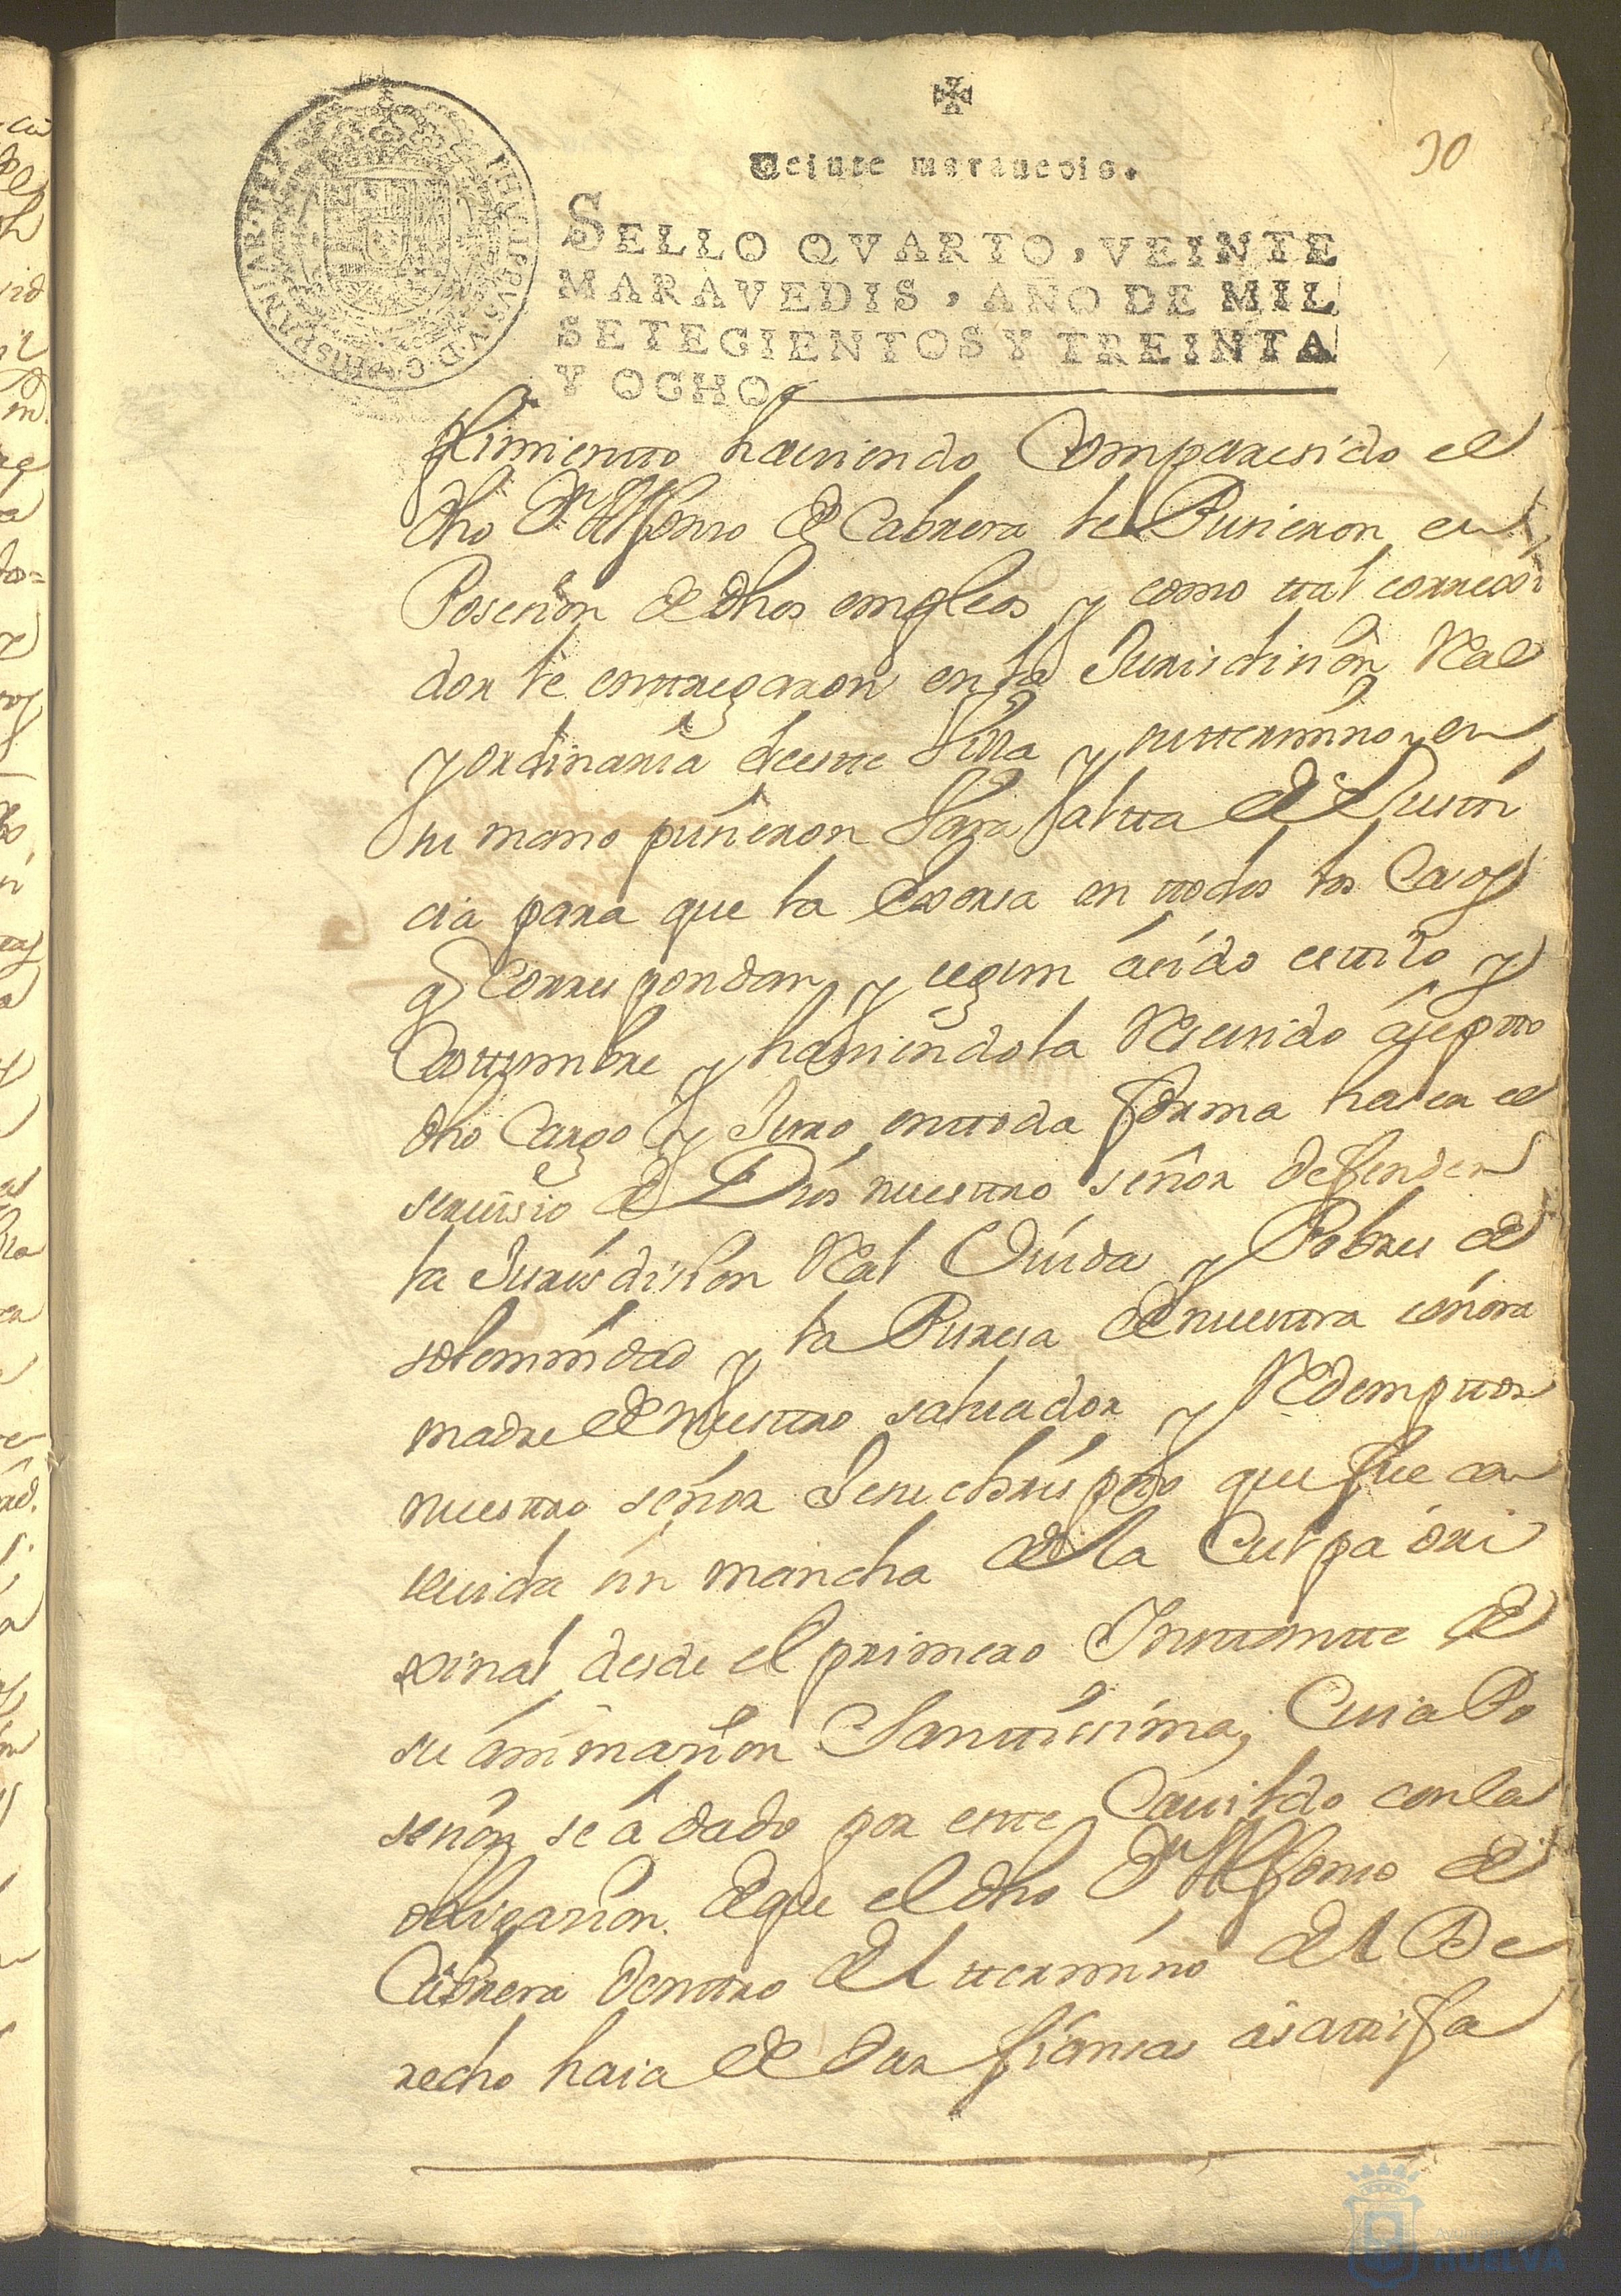 Veinte maravedis.
30
SELLO QVARTO, VEINTE
MARAVEDIS, AÑO DE MIL
SETECIENTOS Y TREINTA
Y OCHO
PHILIPPUS·V·D·G·HISPANIAR·REX
plimientto haviendo Comparesido el
dho Dn Alfonso de Cabrera le Pusieron en
Posesion de dhos empleos y como tal correxi
dor le enttregaron en la Jurisdision Real
y ordinaria de estte Villa y su ttermino en
su mano pusieron Vara altta de Justi
cia para que la exersa en ttodos los Casos
q Correspondan y segun á sido esttilo y
Costtumbre y haviendola Resevido áseptto
dho Cargo y Juro en ttoda forma haser el
servisio de Dios nuesttro señor defender
la Jurisdision Real Viuda y Pobres de
solemnidad y la Puresa de nuesttra señora
madre de Nuesttro salvador y Redempttor
nuesttro señor Jesuchripsto que fue con
sevida sin mancha de la Culpa ori
xinal desde el primero Insttantte de
su ánimasion Santtissima, Cuia Po
sesion se á dado por estte Cavildo con la
obligasion de que el dho Dn Alfonso de
Cabrera denttro del ttermino del De
recho haia de dar fiansas á sattisfa
Ayuntamiento de
HUELVA